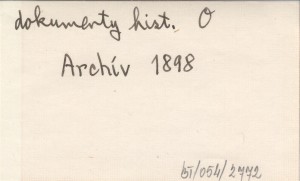 dokumenty hist. O
Archív 1898
bī/054/2772